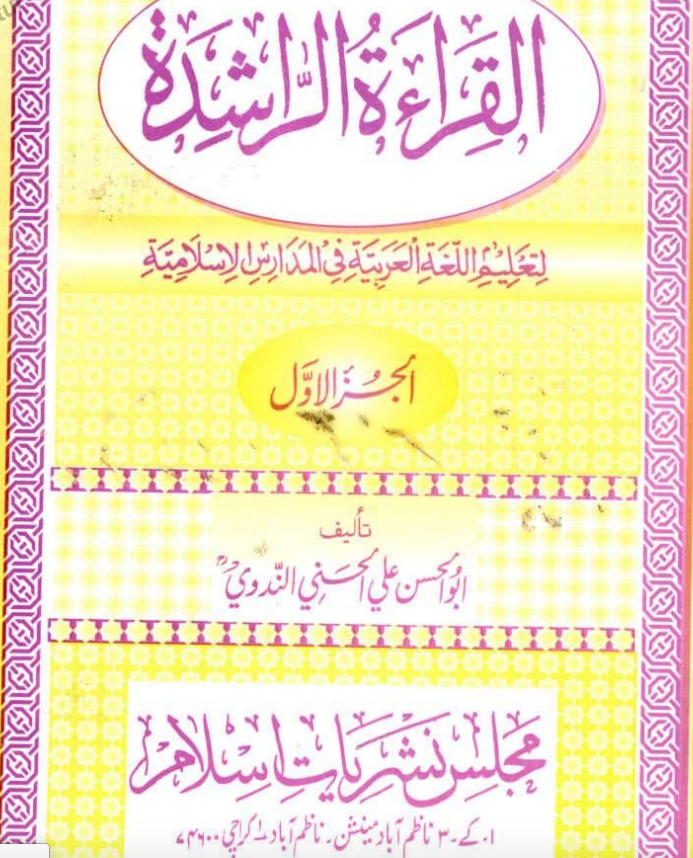 القِرَاءَةُ الرَّاشِدَة
لِتَعْلِيْمِ اللُّغَةِ الْعَرَبِيَّةِ فِى الْمَدَارِسِ الاِسْلَامِيَّةِ
الجُزْءُ الاوَّل
تأليف
ابو الحسن علي الحسني الندوي
مجلس نشریات اسلام
۱۔ کے۔ ۳ ناظم آباد مینشن۔ ناظم آباد ۱ کراچی ۷۴۶۰۰